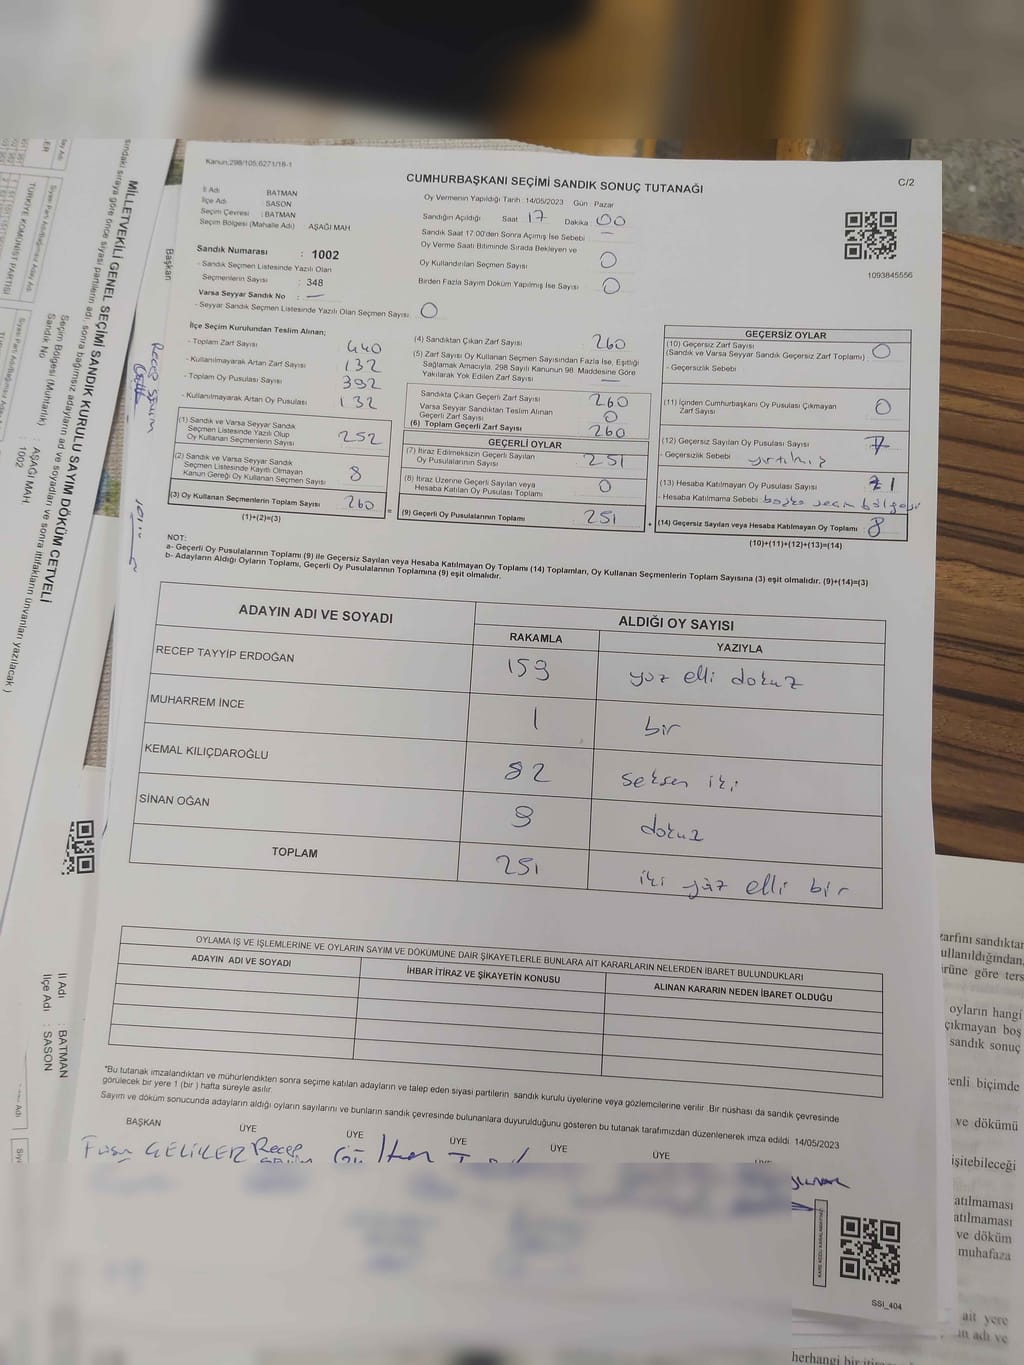 Kanun;298/105,6271/18-1
CUMHURBAŞKANI SEÇİMİ SANDIK SONUÇ TUTANAĞI
C/2
İl Adı BATMAN
İlçe Adı : SASON
Seçim Çevresi : BATMAN
Seçim Bölgesi (Mahalle Adı) AŞAĞI MAH
Sandık Numarası : 1002
- Sandık Seçmen Listesinde Yazılı Olan
Seçmenlerin Sayısı : 348
Varsa Seyyar Sandık No : —
- Seyyar Sandık Seçmen Listesinde Yazılı Olan Seçmen Sayısı 0
Oy Vermenin Yapıldığı Tarih 14/05/2023 Gün Pazar
Sandığın Açıldığı Saat 17 Dakika 00
Sandık Saat 17:00'den Sonra Açılmış İse Sebebi —
Oy Verme Saati Bitiminde Sırada Bekleyen ve
Oy Kullandırılan Seçmen Sayısı 0
Birden Fazla Sayım Döküm Yapılmış İse Sayısı 0
1093845556
İlçe Seçim Kurulundan Teslim Alınan;
- Toplam Zarf Sayısı 440
- Kullanılmayarak Artan Zarf Sayısı 132
- Toplam Oy Pusulası Sayısı 392
- Kullanılmayarak Artan Oy Pusulası 132
(1) Sandık ve Varsa Seyyar Sandık
Seçmen Listesinde Yazılı Olup
Oy Kullanan Seçmenlerin Sayısı 252
(2) Sandık ve Varsa Seyyar Sandık
Seçmen Listesinde Kayıtlı Olmayan
Kanun Gereği Oy Kullanan Seçmen Sayısı 8
(3) Oy Kullanan Seçmenlerin Toplam Sayısı 260 =
(1)+(2)=(3)
(4) Sandıktan Çıkan Zarf Sayısı 260
(5) Zarf Sayısı Oy Kullanan Seçmen Sayısından Fazla İse, Eşitliği
Sağlamak Amacıyla, 298 Sayılı Kanunun 98. Maddesine Göre
Yakılarak Yok Edilen Zarf Sayısı —
Sandıkta Çıkan Geçerli Zarf Sayısı 260
Varsa Seyyar Sandıktan Teslim Alınan
Geçerli Zarf Sayısı 0
(6) Toplam Geçerli Zarf Sayısı 260
GEÇERLİ OYLAR
(7) İtiraz Edilmeksizin Geçerli Sayılan
Oy Pusulalarının Sayısı 251
(8) İtiraz Üzerine Geçerli Sayılan veya
Hesaba Katılan Oy Pusulası Toplamı 0
(9) Geçerli Oy Pusulalarının Toplamı 251 +
GEÇERSİZ OYLAR
(10) Geçersiz Zarf Sayısı
(Sandık ve Varsa Seyyar Sandık Geçersiz Zarf Toplamı) 0
- Geçersizlik Sebebi
(11) İçinden Cumhurbaşkanı Oy Pusulası Çıkmayan
Zarf Sayısı 0
(12) Geçersiz Sayılan Oy Pusulası Sayısı 7
- Geçersizlik Sebebi yırtılmış
(13) Hesaba Katılmayan Oy Pusulası Sayısı 1
- Hesaba Katılmama Sebebi başka seçim bölgesi
(14) Geçersiz Sayılan veya Hesaba Katılmayan Oy Toplamı 8
(10)+(11)+(12)+(13)=(14)
NOT:
a- Geçerli Oy Pusulalarının Toplamı (9) ile Geçersiz Sayılan veya Hesaba Katılmayan Oy Toplamı (14) Toplamları, Oy Kullanan Seçmenlerin Toplam Sayısına (3) eşit olmalıdır. (9)+(14)=(3)
b- Adayların Aldığı Oyların Toplamı, Geçerli Oy Pusulalarının Toplamına (9) eşit olmalıdır.
ADAYIN ADI VE SOYADI ALDIĞI OY SAYISI
RAKAMLA YAZIYLA
RECEP TAYYİP ERDOĞAN 159 yüz elli dokuz
MUHARREM İNCE 1 bir
KEMAL KILIÇDAROĞLU 82 seksen iki
SİNAN OĞAN 9 dokuz
TOPLAM 251 iki yüz elli bir
OYLAMA İŞ VE İŞLEMLERİNE VE OYLARIN SAYIM VE DÖKÜMÜNE DAİR ŞİKAYETLERLE BUNLARA AİT KARARLARIN NELERDEN İBARET BULUNDUKLARI
ADAYIN ADI VE SOYADI İHBAR İTİRAZ VE ŞİKAYETİN KONUSU ALINAN KARARIN NEDEN İBARET OLDUĞU
"Bu tutanak imzalandıktan ve mühürlendikten sonra seçime katılan adayların ve talep eden siyasi partilerin sandık kurulu üyelerine veya gözlemcilerine verilir .Bir nüshası da sandık çevresinde
görülecek bir yere 1 (bir ) hafta süreyle asılır.
Sayım ve döküm sonucunda adayların aldığı oyların sayılarını ve bunların sandık çevresinde bulunanlara duyurulduğunu gösteren bu tutanak tarafımızdan düzenlenerek imza edildi 14/05/2023
BAŞKAN ÜYE ÜYE ÜYE ÜYE ÜYE
GELİCER Recep
KARE KODU KARALAMAYINIZ
SSI_404
MİLLETVEKİLİ GENEL SEÇİMİ SANDIK KURULU SAYIM DÖKÜM CETVELİ
sındaki sıraya göre önce siyasi partilerin adı, sonra bağımsız adayların ad ve soyadları ve sonra ittifakların ünvanları yazılacak )
Seçim Bölgesi (Muhtarlık) : AŞAĞI MAH
Sandık No : 1002
TÜRKİYE KOMÜNİST PARTİSİ
Başkan
Recep
İl Adı : BATMAN
İlçe Adı : SASON
zarfını sandıktan
kullanıldığından,
rüne göre ters
oyların hangi
çıkmayan boş
sandık sonuç
enli biçimde
ve dökümü
işitebileceği
atılmaması
atılmaması
ve döküm
muhafaza
ait yere
ın adı ve
herhangi bir